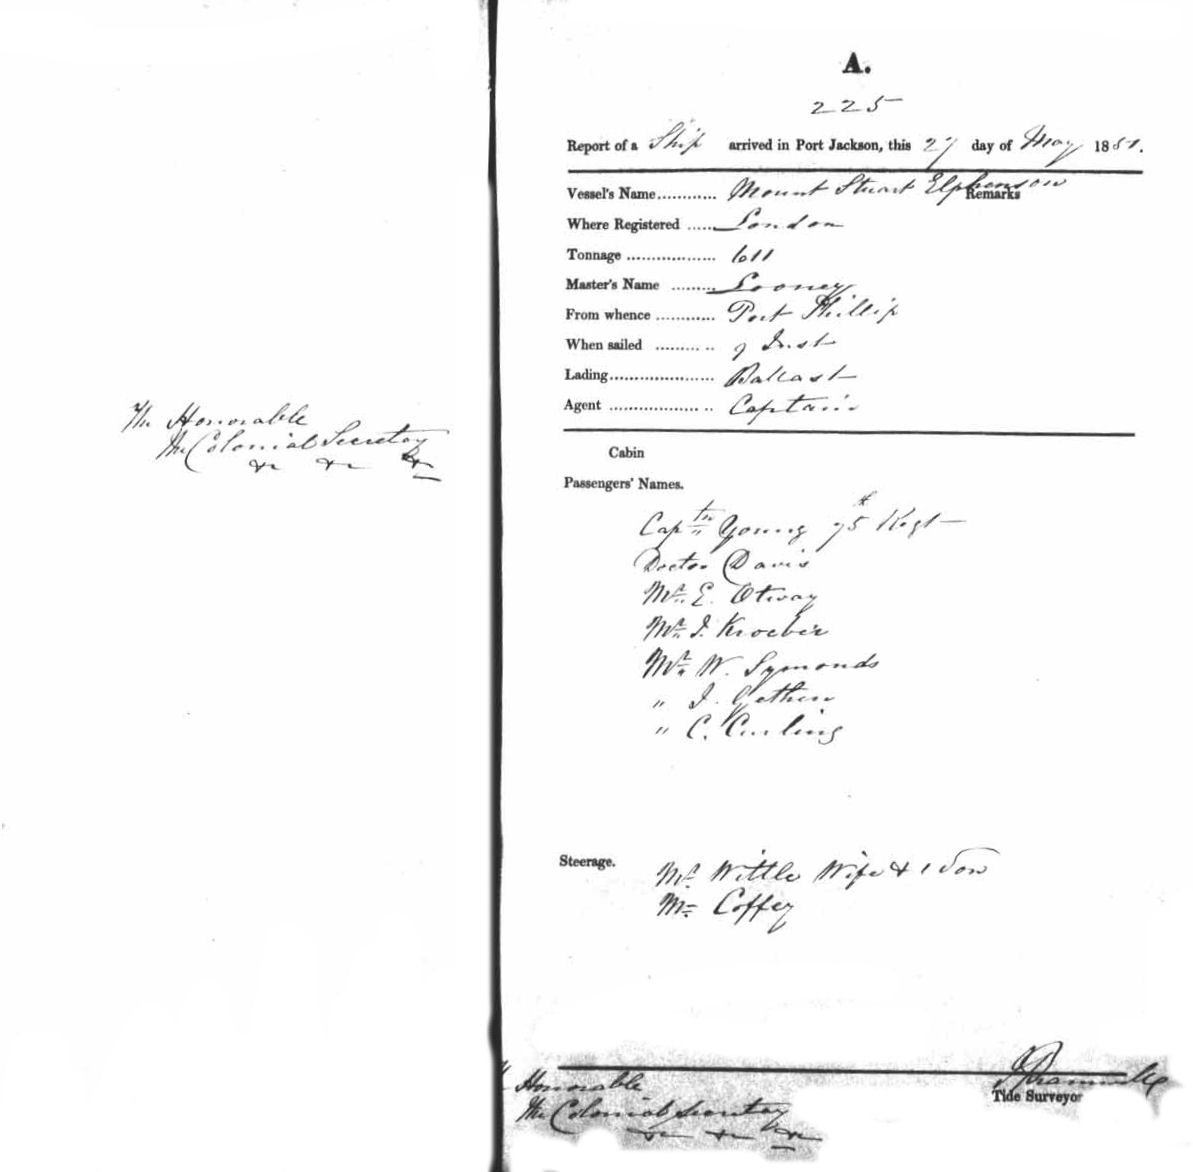 The Honorable
The Colonial Secretary
&c &c &c
A.
225
Report of a Ship arrived in Port Jackson, this 27 day of May 1851.
Vessel's Name............ Mount Stuart Elphenson
Remarks
Where Registered ...... London
Tonnage .................. 611
Master's Name ......... Looney
From whence ............ Port Phillip
When sailed ........... 9 Inst
Lading..................... Ballast
Agent .................... Captain
Cabin
Passengers' Names.
Captn Young 75th Regt
Doctor Davis
Mr. E. Otway
Mr. J. Kroeber
Mr. W. Symonds
" J. Gethen
" C. Curling
Steerage.
Mr Wittle Wife & 1 Son
Mr Coffey
Honorable
The Colonial Secretary
&c &c &c
Tide Surveyor